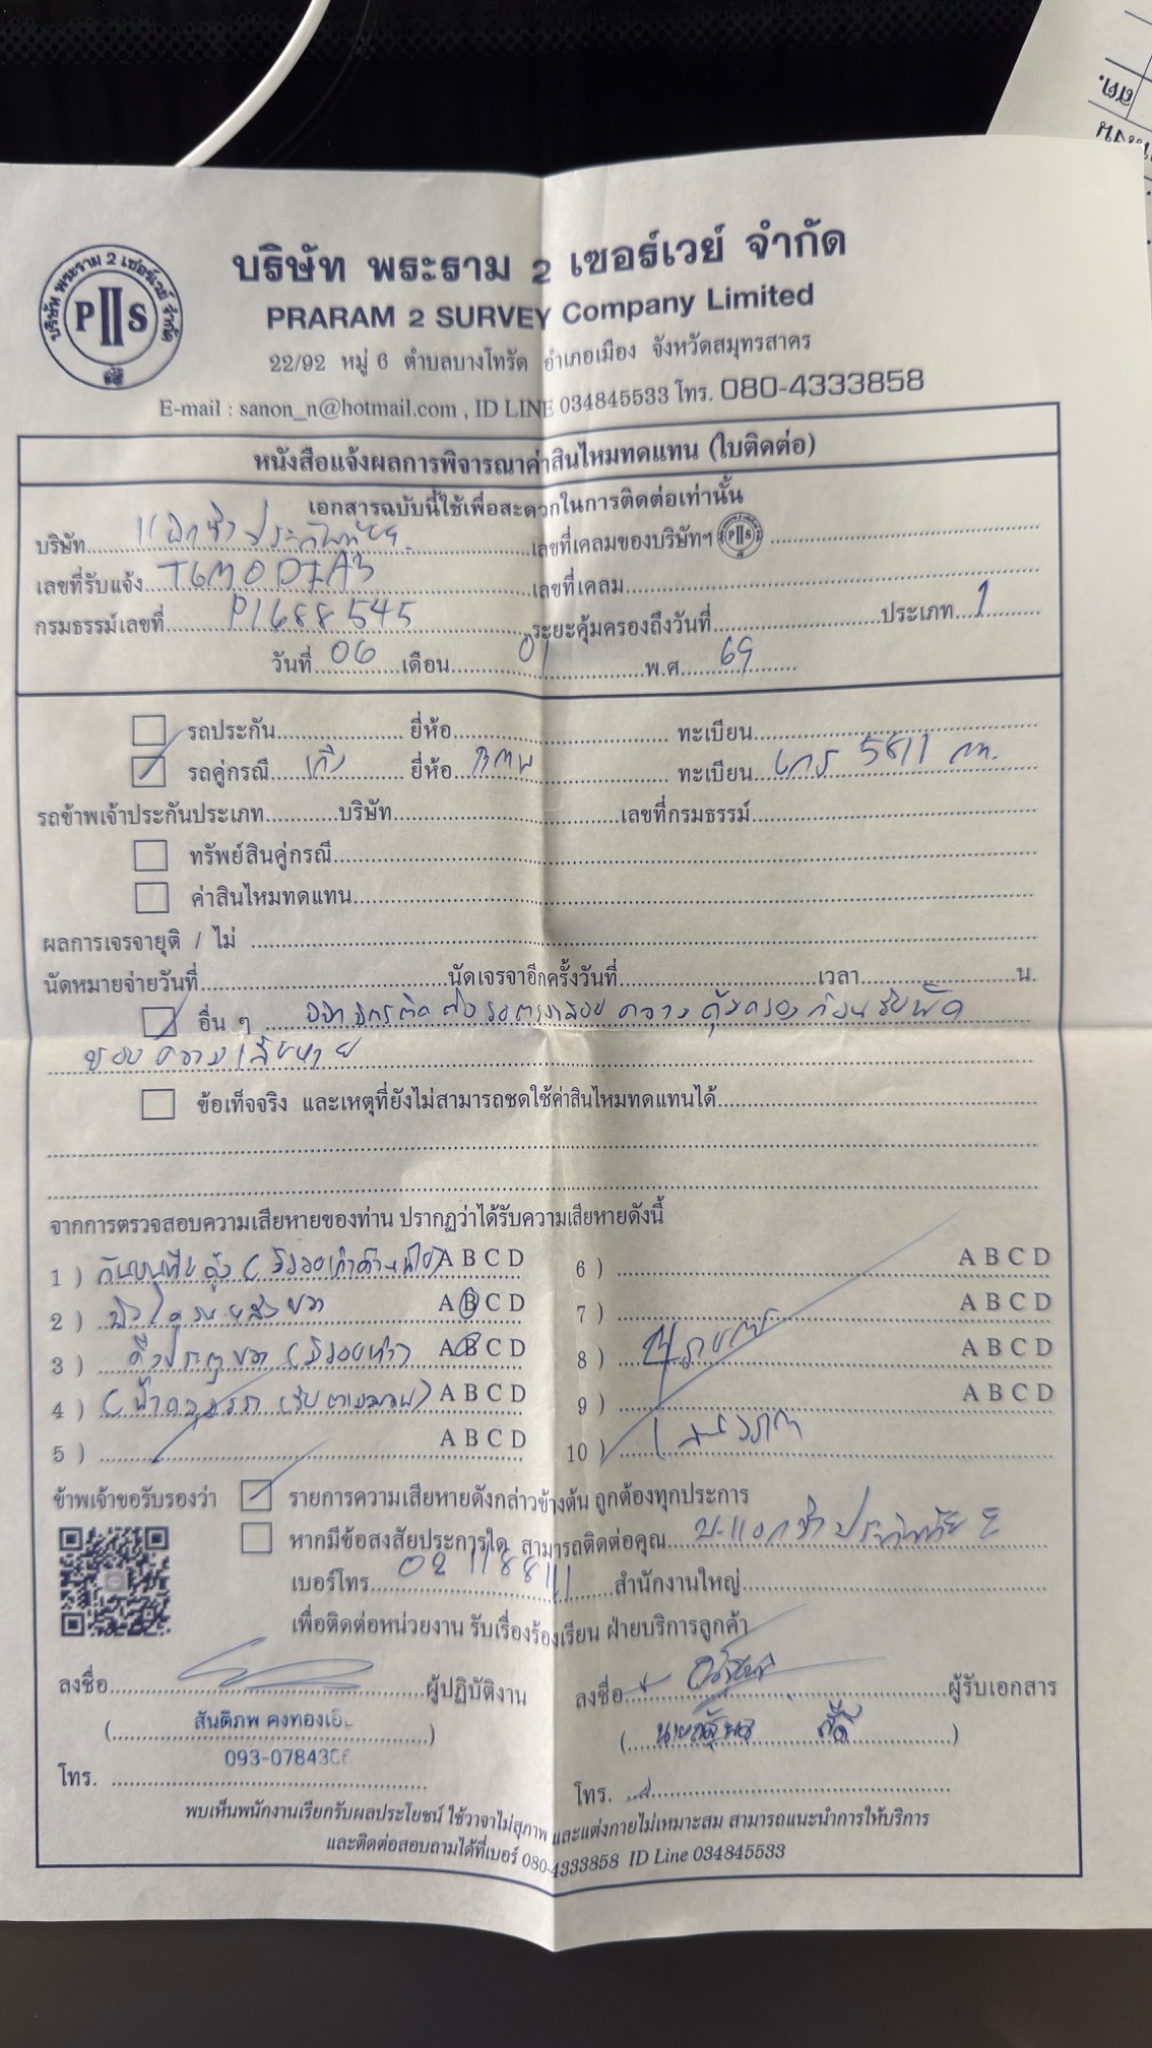 บริษัท พระราม 2 เซอร์เวย์ จำกัด
PRARAM 2 SURVEY Company Limited
22/92 หมู่ 6 ตำบลบางโทรัด อำเภอเมือง จังหวัดสมุทรสาคร
E-mail : sanon_n@hotmail.com , ID LINE 034845533 โทร. 080-4333858
หนังสือแจ้งผลการพิจารณาค่าสินไหมทดแทน (ใบติดต่อ)
เอกสารฉบับนี้ใช้เพื่อสะดวกในการติดต่อเท่านั้น
บริษัท ประกันภัย เลขที่เคลมของบริษัทฯ
เลขที่รับแจ้ง เลขที่เคลม
กรมธรรม์เลขที่ P1688545 ระยะคุ้มครองถึงวันที่ ประเภท 1
วันที่ 06 เดือน 01 พ.ศ. 69
รถประกัน ยี่ห้อ ทะเบียน
รถคู่กรณี เก๋ง ยี่ห้อ ทะเบียน 5611 กท.
รถข้าพเจ้าประกันประเภท บริษัท เลขที่กรมธรรม์
ทรัพย์สินคู่กรณี
ค่าสินไหมทดแทน
ผลการเจรจายุติ / ไม่
นัดหมายจ่ายวันที่ นัดเจรจาอีกครั้งวันที่ เวลา น.
อื่น ๆ ความคุ้มครองก่อนรับผิด
ชอบความเสียหาย
ข้อเท็จจริง และเหตุที่ยังไม่สามารถชดใช้ค่าสินไหมทดแทนได้
จากการตรวจสอบความเสียหายของท่าน ปรากฏว่าได้รับความเสียหายดังนี้
1 ) A B C D 6 ) A B C D
2 ) A B C D 7 ) A B C D
3 ) A B C D 8 ) A B C D
4 ) A B C D 9 ) A B C D
5 ) A B C D 10 )
ข้าพเจ้าขอรับรองว่า รายการความเสียหายดังกล่าวข้างต้น ถูกต้องทุกประการ
หากมีข้อสงสัยประการใด สามารถติดต่อคุณ
เบอร์โทร 02 1188111 สำนักงานใหญ่
เพื่อติดต่อหน่วยงาน รับเรื่องร้องเรียน ฝ่ายบริการลูกค้า
ลงชื่อ ผู้ปฏิบัติงาน ลงชื่อ ผู้รับเอกสาร
สันติภพ
โทร. โทร.
พบเห็นพนักงานเรียกรับผลประโยชน์ ใช้วาจาไม่สุภาพ และแต่งกายไม่เหมาะสม สามารถแนะนำการให้บริการ
และติดต่อสอบถามได้ที่เบอร์ 080-4333858 ID Line 034845533